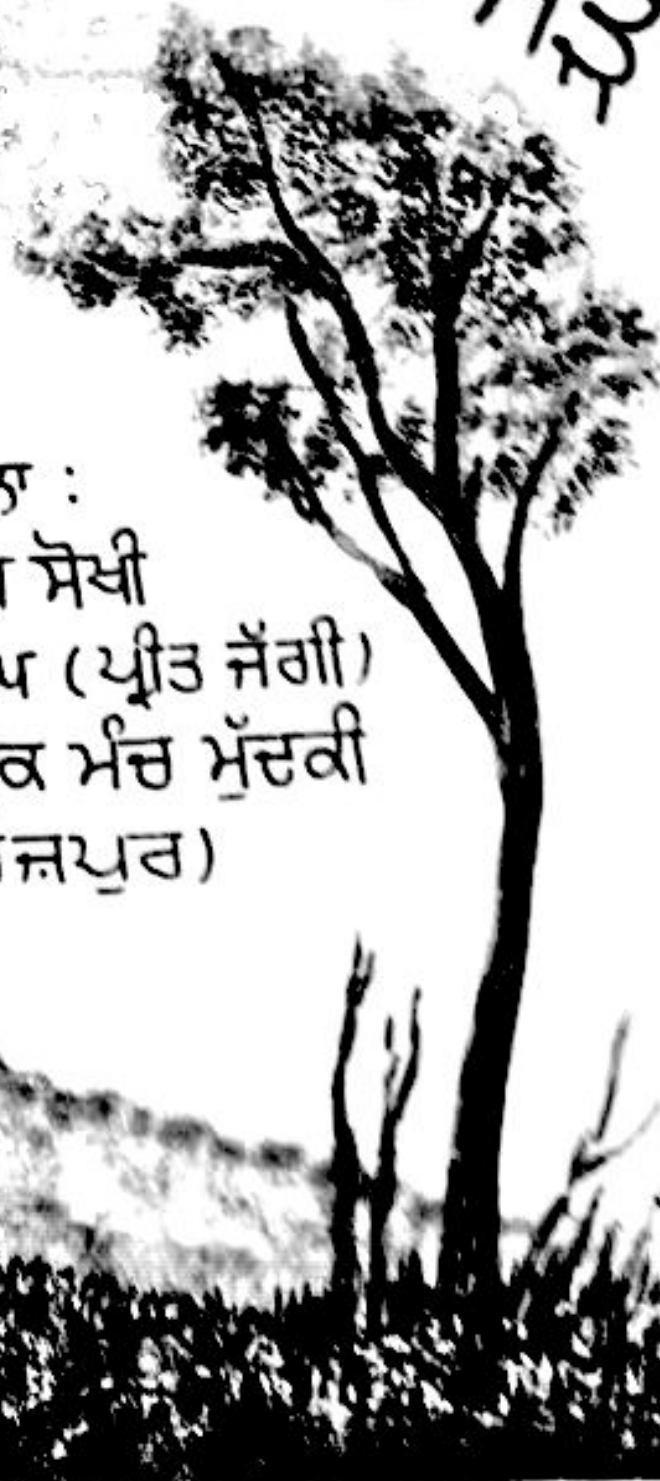 ਨਾ :
ਸੋਖੀ
(ਪ੍ਰੀਤ ਜੱਗੀ)
ਕ ਮੰਚ ਮੁੱਦਕੀ
ਜ਼ਪੁਰ)